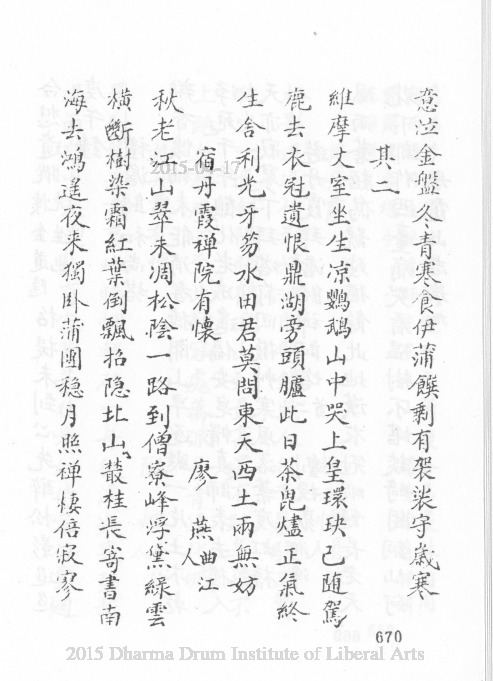 意泣金盤冬青寒食伊蒲饌剩有袈裟守歲寒
其二
維摩丈室坐生凉鸚鵡山中哭上皇環玦已随駕
鹿去衣冠遺恨鼎湖旁頭臚此日荼毘燼正氣終
生舍利光牙笏水田君莫問東天西土兩無妨
宿丹霞禅院有懷
廖燕曲江人
秋老江山翠未凋松陰一路到僧寮峰浮黛綠雲
橫斷樹染霜紅葉倒飄招隐北山叢桂長寄書南
海去鴻遥夜来獨卧蒲團稳月照禅棲倍寂寥
670
2015-04-17
2015 Dharma Drum Institute of Liberal Arts